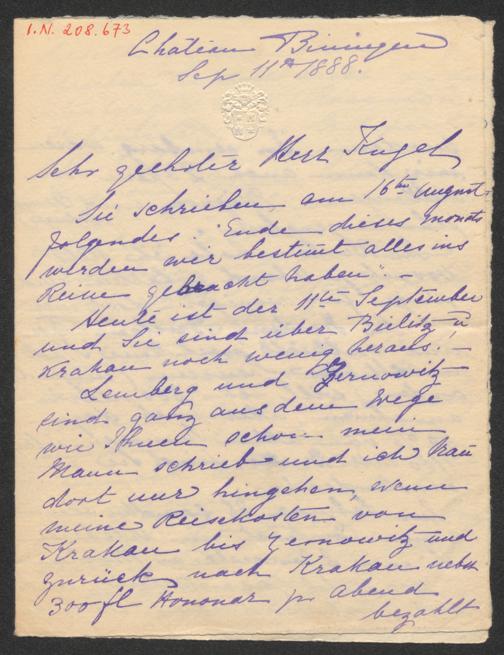 I.N. 208.673
Château Biningen
Sep 11th 1888.
Sehr geehrter Herr Kugel
Sie schrieben am 16ten August
folgendes "Ende dieses Monats
werden wir bestimt alles ins
Reine gebracht haben" –
Heute ist der 11te September
und Sie sind über Bielitz u
Krakau noch wenig heraus! –
Lemberg und Zernowitz
sind ganz aus dem Wege
wie Ihnen schon mein
Mann schrieb und ich kan
dort nur hingehen, wenn
meine Reisekosten von
Krakau bis Zernowitz und
zurück nach Krakau nebst
300 fl Honorar pr abend
bezahlt